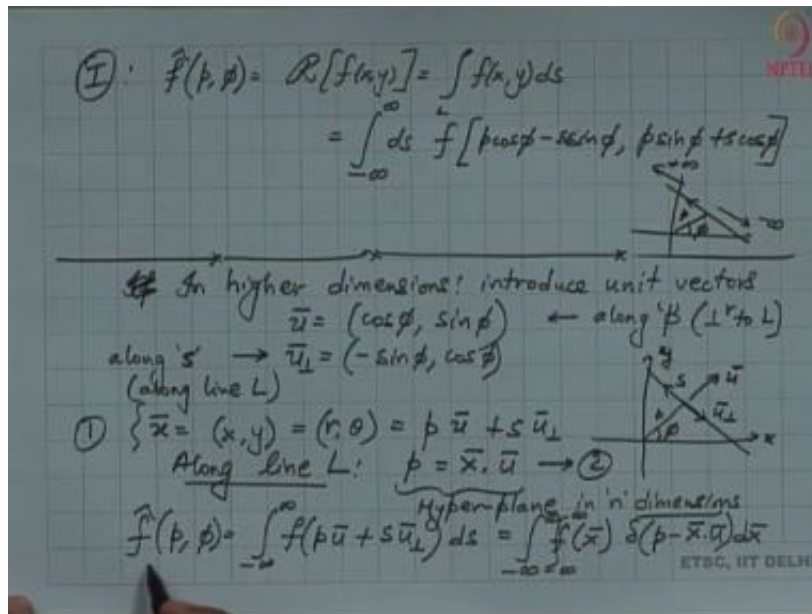 I : f̂(p, φ) = R[f(x,y)] = ∫_L f(x,y) ds
= ∫_{-∞}^{∞} ds f[p cosφ - s sinφ, p sinφ + s cosφ]
NPTEL
+∞
p
φ
-∞
In higher dimensions: introduce unit vectors
ū = (cosφ, sinφ) ← along 'p' (⊥r to L)
along 's' → ū⊥ = (-sinφ, cosφ)
(along line L)
y
s
ū
p
ū⊥
φ
x
① { x̄ = (x, y) = (r, θ) = p ū + s ū⊥
Along line L: p = x̄.ū → ②
Hyper-plane in 'n' dimensions
f̂(p, φ) = ∫_{-∞}^{∞} f(p ū + s ū⊥) ds = ∫_{-∞}^{∞} ∫_{-∞}^{∞} f(x̄) δ(p - x̄.ū) dx̄
ETSC, IIT DELHI